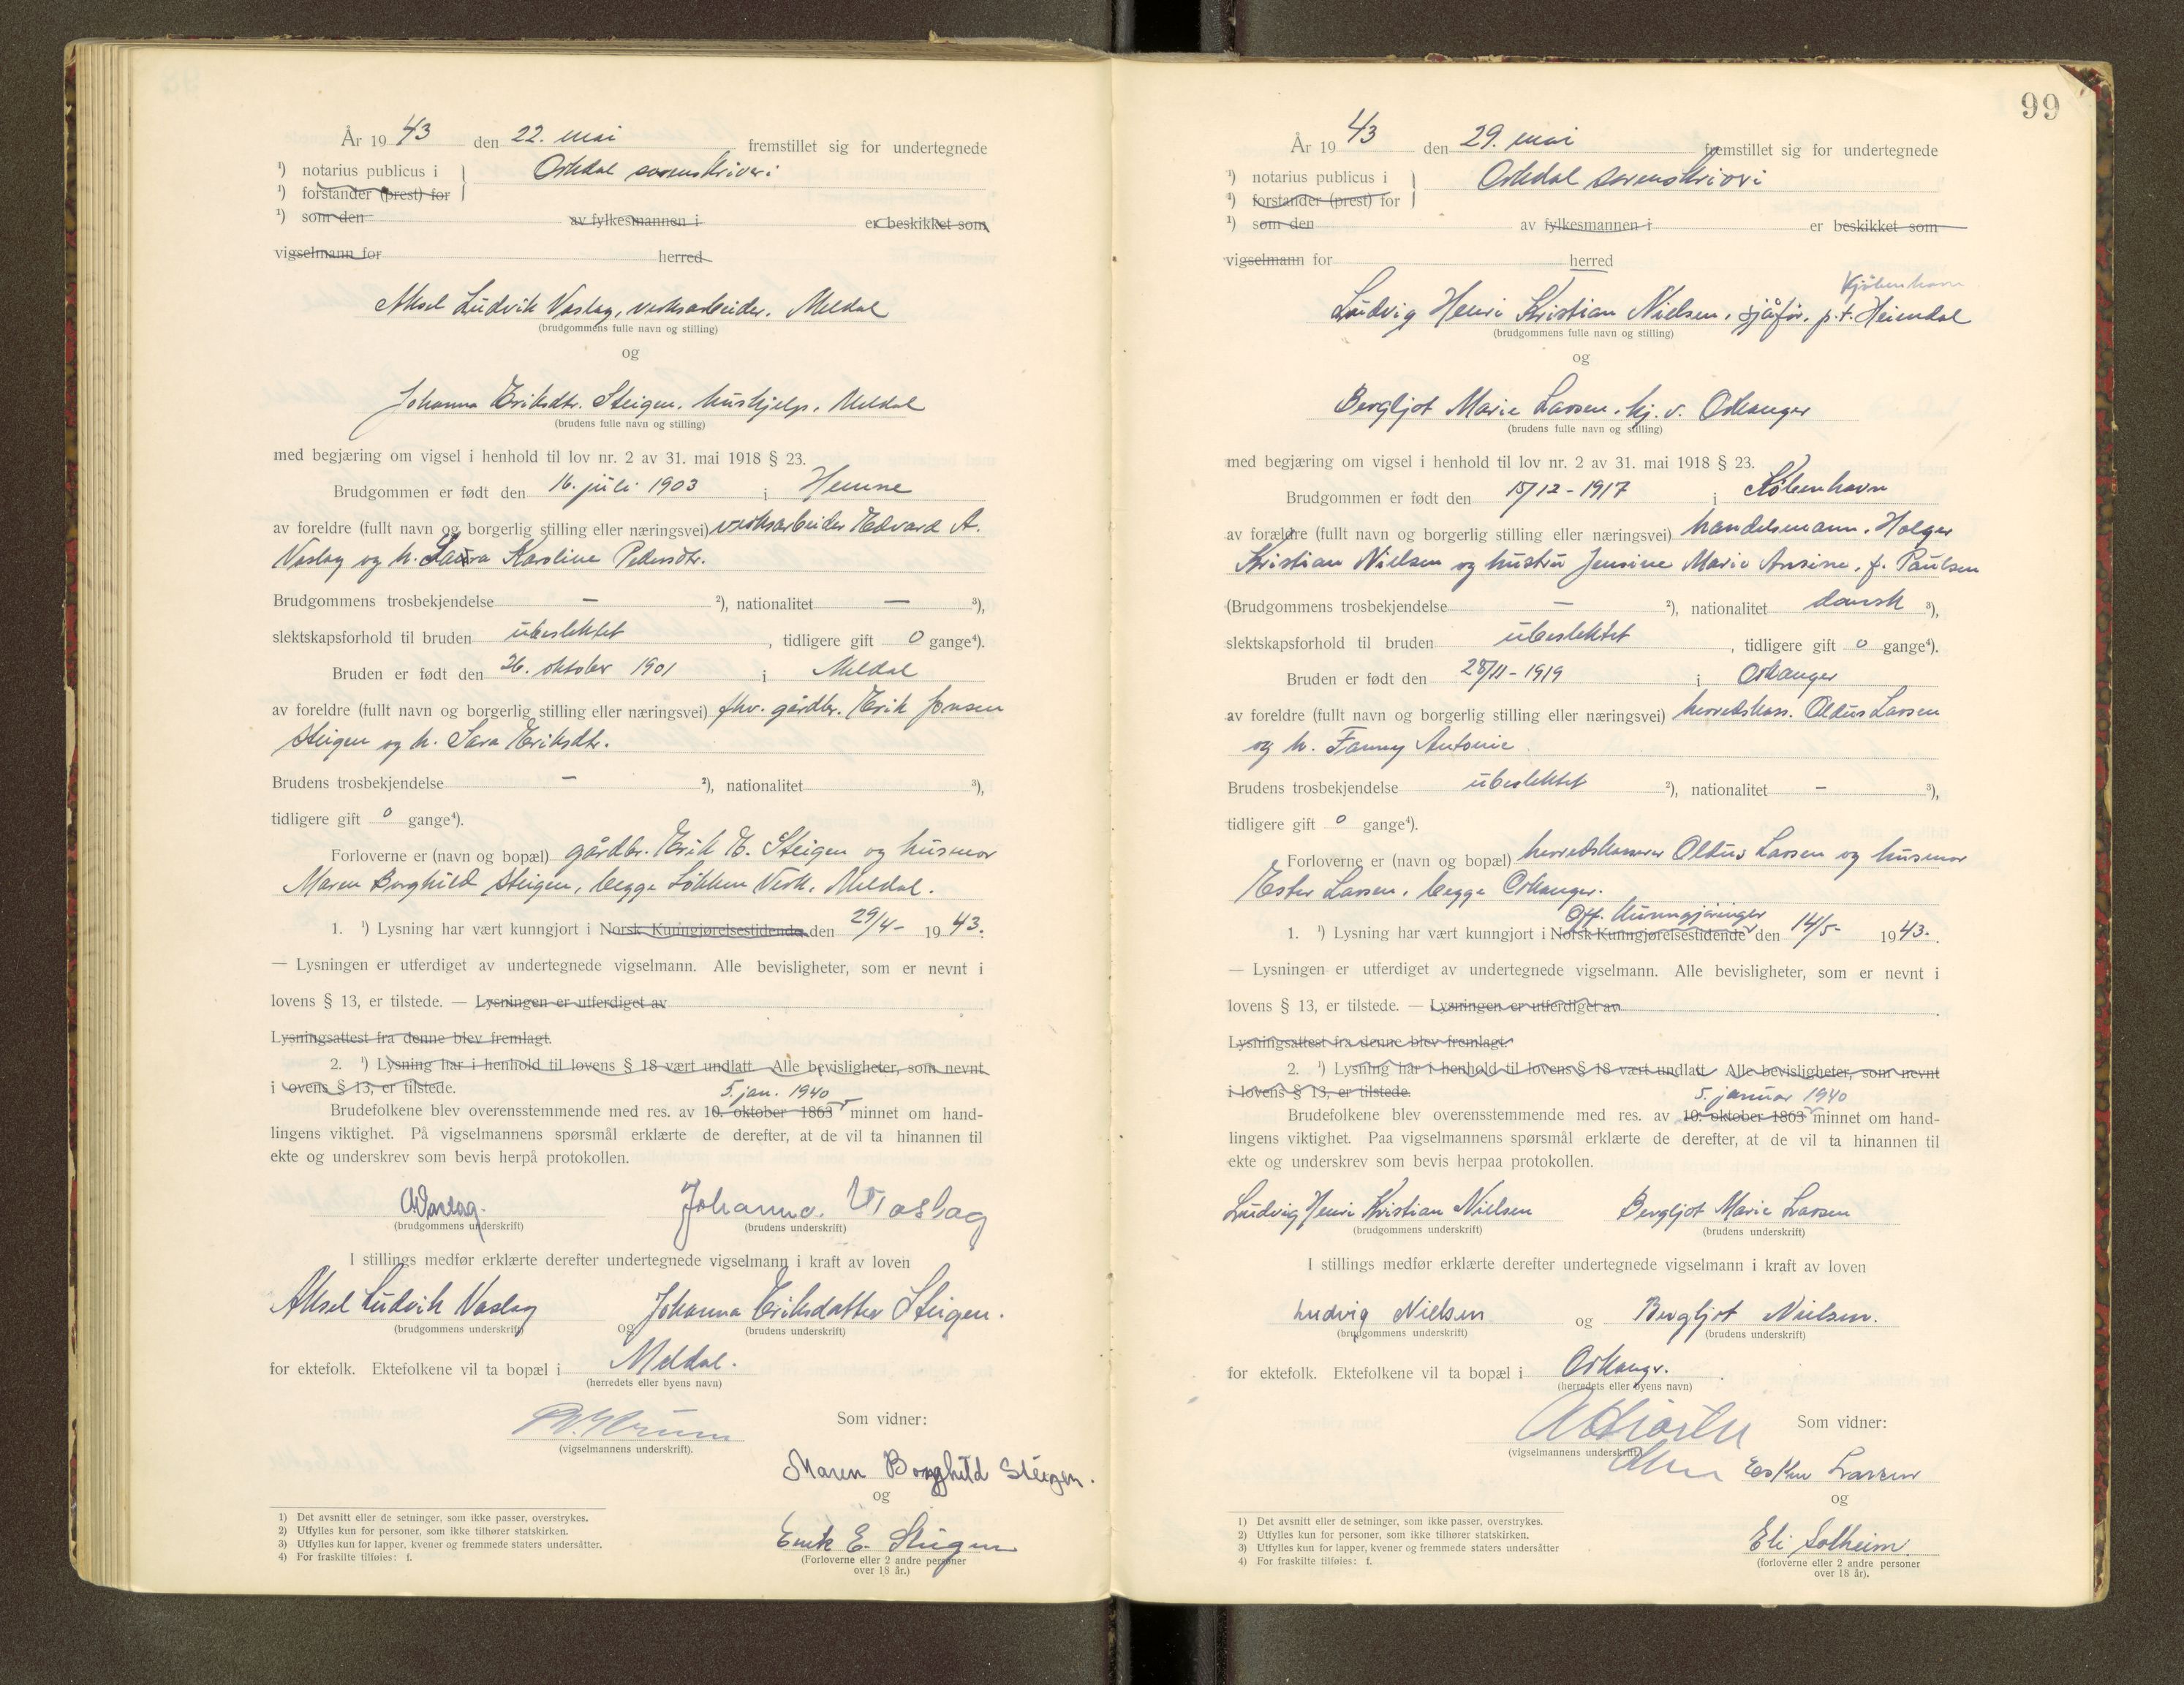 År 19 43 den 22. mai fremstillet sig for undertegnede
¹) notarius publicus i } Orkdal sorenskriveri
¹) forstander (prest) for
¹) som den av fylkesmannen i er beskikket som
vigselmann for herred
Aksel Ludvik Vaslag, verksarbeider. Meldal
(brudgommens fulle navn og stilling)
og
Johanna Eriksdtr. Steigen, hushjelp, Meldal
(brudens fulle navn og stilling)
med begjæring om vigsel i henhold til lov nr. 2 av 31. mai 1918 § 23.
Brudgommen er født den 16. juli 1903 i Hemne
av foreldre (fullt navn og borgerlig stilling eller næringsvei) verksarbeider Edvard A.
Vaslag og h. Laura Karoline Pedersdtr.
Brudgommens trosbekjendelse – ²), nationalitet – ³),
slektskapsforhold til bruden ubeslektet, tidligere gift 0 gange⁴).
Bruden er født den 26. oktober 1901 i Meldal
av foreldre (fullt navn og borgerlig stilling eller næringsvei) fhv. gårdbr. Erik Jonsen
Steigen og h. Sara Eriksdtr.
Brudens trosbekjendelse – ²), nationalitet ³),
tidligere gift 0 gange⁴).
Forloverne er (navn og bopæl) gårdbr. Erik E. Steigen og husmor
Maren Borghild Steigen, begge Løkken Verk, Meldal.
1. ¹) Lysning har vært kunngjort i Norsk Kunngjørelsestidende den 29/4- 19 43.
— Lysningen er utferdiget av undertegnede vigselmann. Alle bevisligheter, som er nevnt i
lovens § 13, er tilstede. — Lysningen er utferdiget av
Lysningsattest fra denne blev fremlagt.
2. ¹) Lysning har i henhold til lovens § 18 vært undlatt. Alle bevisligheter, som nevnt
i lovens § 13, er tilstede.
5. jan. 1940
Brudefolkene blev overensstemmende med res. av 10. oktober 1863 minnet om hand-
lingens viktighet. På vigselmannens spørsmål erklærte de derefter, at de vil ta hinannen til
ekte og underskrev som bevis herpå protokollen.
A Vaslag. Johanna Vaslag
(brudgommens underskrift) (brudens underskrift)
I stillings medfør erklærte derefter undertegnede vigselmann i kraft av loven
Aksel Ludvik Vaslag og Johanna Eriksdatter Steigen.
(brudgommens underskrift) (brudens underskrift)
for ektefolk. Ektefolkene vil ta bopæl i Meldal.
(herredets eller byens navn)
Som vidner:
(vigselmannens underskrift).
Maren Borghild Steigen.
og
Erik E. Steigen
(Forloverne eller 2 andre personer
over 18 år.)
1) Det avsnitt eller de setninger, som ikke passer, overstrykes.
2) Utfylles kun for personer, som ikke tilhører statskirken.
3) Utfylles kun for lapper, kvener og fremmede staters undersåtter.
4) For fraskilte tilføies: f.
99
År 19 43 den 29. mai fremstillet sig for undertegnede
¹) notarius publicus i } Orkdal sorenskriveri
¹) forstander (prest) for
¹) som den av fylkesmannen i er beskikket som
vigselmann for herred
Kjøbenhavn
Ludvig Henri Kristian Nielsen, sjåfør, p.t. Heimdal
(brudgommens fulle navn og stilling)
og
Bergljot Marie Larsen, hj. v. Orkanger
(brudens fulle navn og stilling)
med begjæring om vigsel i henhold til lov nr. 2 av 31. mai 1918 § 23.
Brudgommen er født den 15/12-1917 i København
av forældre (fullt navn og borgerlig stilling eller næringsvei) handelsmann. Holger
Kristian Nielsen og hustru Jensine Marie Ansine, f. Paulsen
(Brudgommens trosbekjendelse – ²), nationalitet dansk ³),
slektskapsforhold til bruden ubeslektet, tidligere gift 0 gange⁴).
Bruden er født den 28/11-1919 i Orkanger
av foreldre (fullt navn og borgerlig stilling eller næringsvei) herredskass. Oldus Larsen
og h. Fanny Antonie
Brudens trosbekjendelse ubeslektet ²), nationalitet – ³),
tidligere gift 0 gange⁴).
Forloverne er (navn og bopæl) herredskasserer Oldus Larsen og husmor
Ester Larsen, begge Orkanger.
Off. Kunngjøringer
1. ¹) Lysning har vært kunngjort i Norsk Kunngjørelsestidende den 14/5- 19 43.
— Lysningen er utferdiget av undertegnede vigselmann. Alle bevisligheter, som er nevnt i
lovens § 13, er tilstede. — Lysningen er utferdiget av
Lysningsattest fra denne blev fremlagt.
2. ¹) Lysning har i henhold til lovens § 18 vært undlatt Alle bevisligheter, som nevnt
i lovens § 13, er tilstede.
5. januar 1940
Brudefolkene blev overensstemmende med res. av 10. oktober 1863 minnet om hand-
lingens viktighet. Paa vigselmannens spørsmål erklærte de derefter, at de vil ta hinannen til
ekte og underskrev som bevis herpaa protokollen.
Ludvig Henri Kristian Nielsen Bergljot Marie Larsen
(brudgommens underskrift) (brudens underskrift)
I stillings medfør erklærte derefter undertegnede vigselmann i kraft av loven
Ludvig Nielsen og Bergljot Nielsen.
(brudgommens underskrift) (brudens underskrift)
for ektefolk. Ektefolkene vil ta bopæl i Orkanger.
(herredets eller byens navn)
Som vidner:
(vigselmannens underskrift)
Larsen
og
Eli Solheim.
(forloverne eller 2 andre personer
over 18 år).
1) Det avsnitt eller de setninger, som ikke passer, overstrykes.
2) Utfylles kun for personer, som ikke tilhører statskirken.
3) Utfylles kun for lapper, kvener og fremmede staters undersåtter
4) For fraskilte tilføies: f.